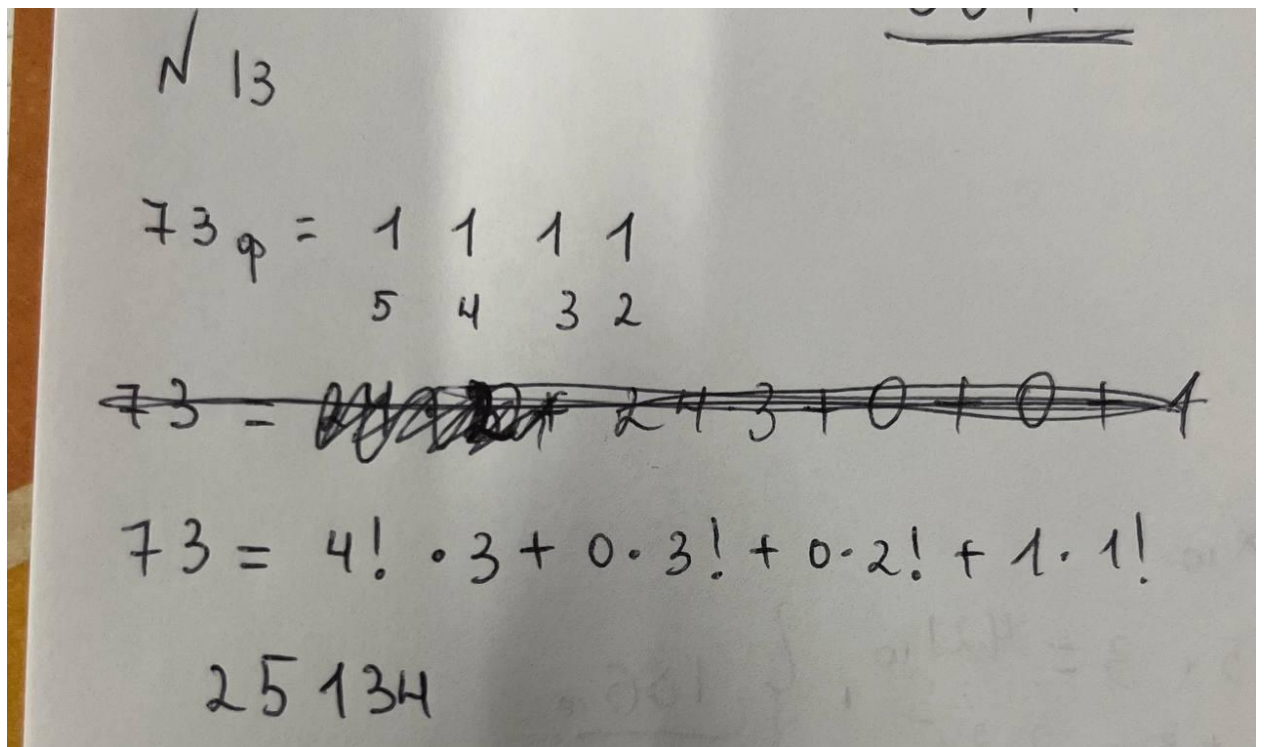 № 13
73ф = 1 1 1 1
5 4 3 2
73 = 24 · 3 + 0 + 0 + 1
73 = 4! · 3 + 0 · 3! + 0 · 2! + 1 · 1!
25134